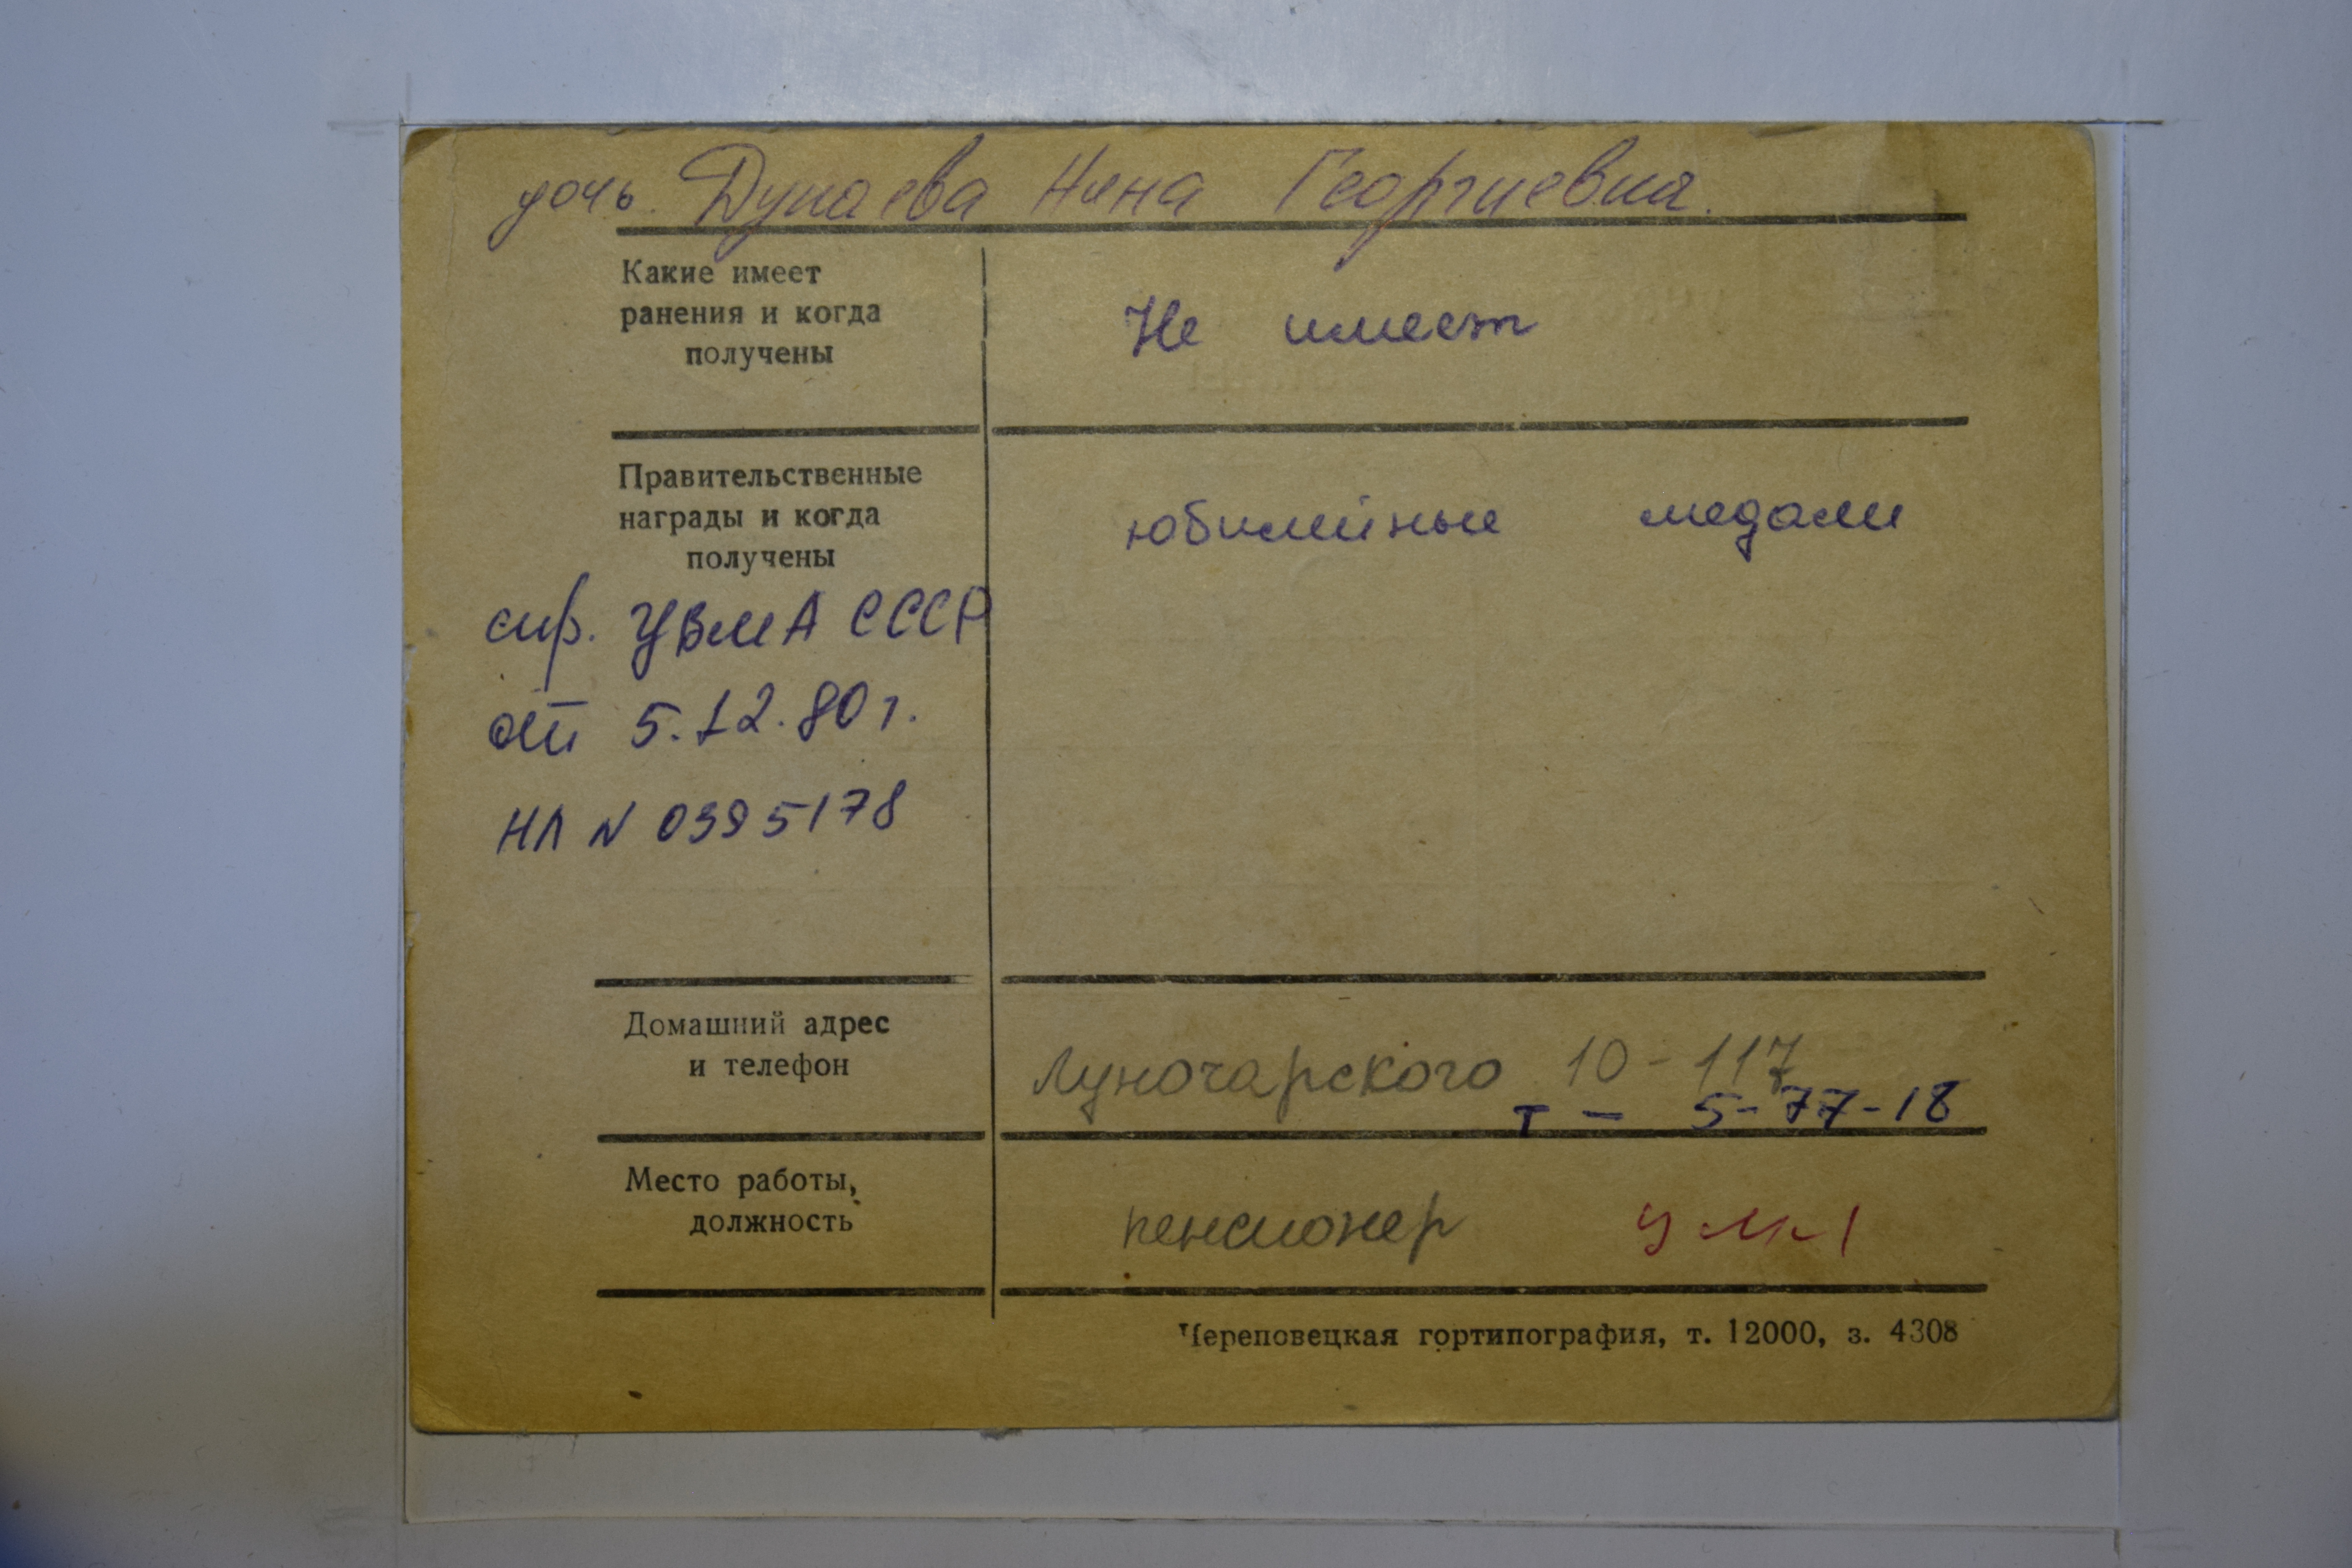 дочь. Дунаева Нина Георгиевна.
Какие имеет
ранения и когда
получены
Не имеет
Правительственные
награды и когда
получены
юбилейные медали
УВМА СССР
от 5.12.80 г.
НЛ N 0395178
Домашний адрес
и телефон
Луночарского 10-117
т - 5-77-18
Место работы,
должность
пенсионер
Череповецкая гортипография, т. 12000, з. 4308